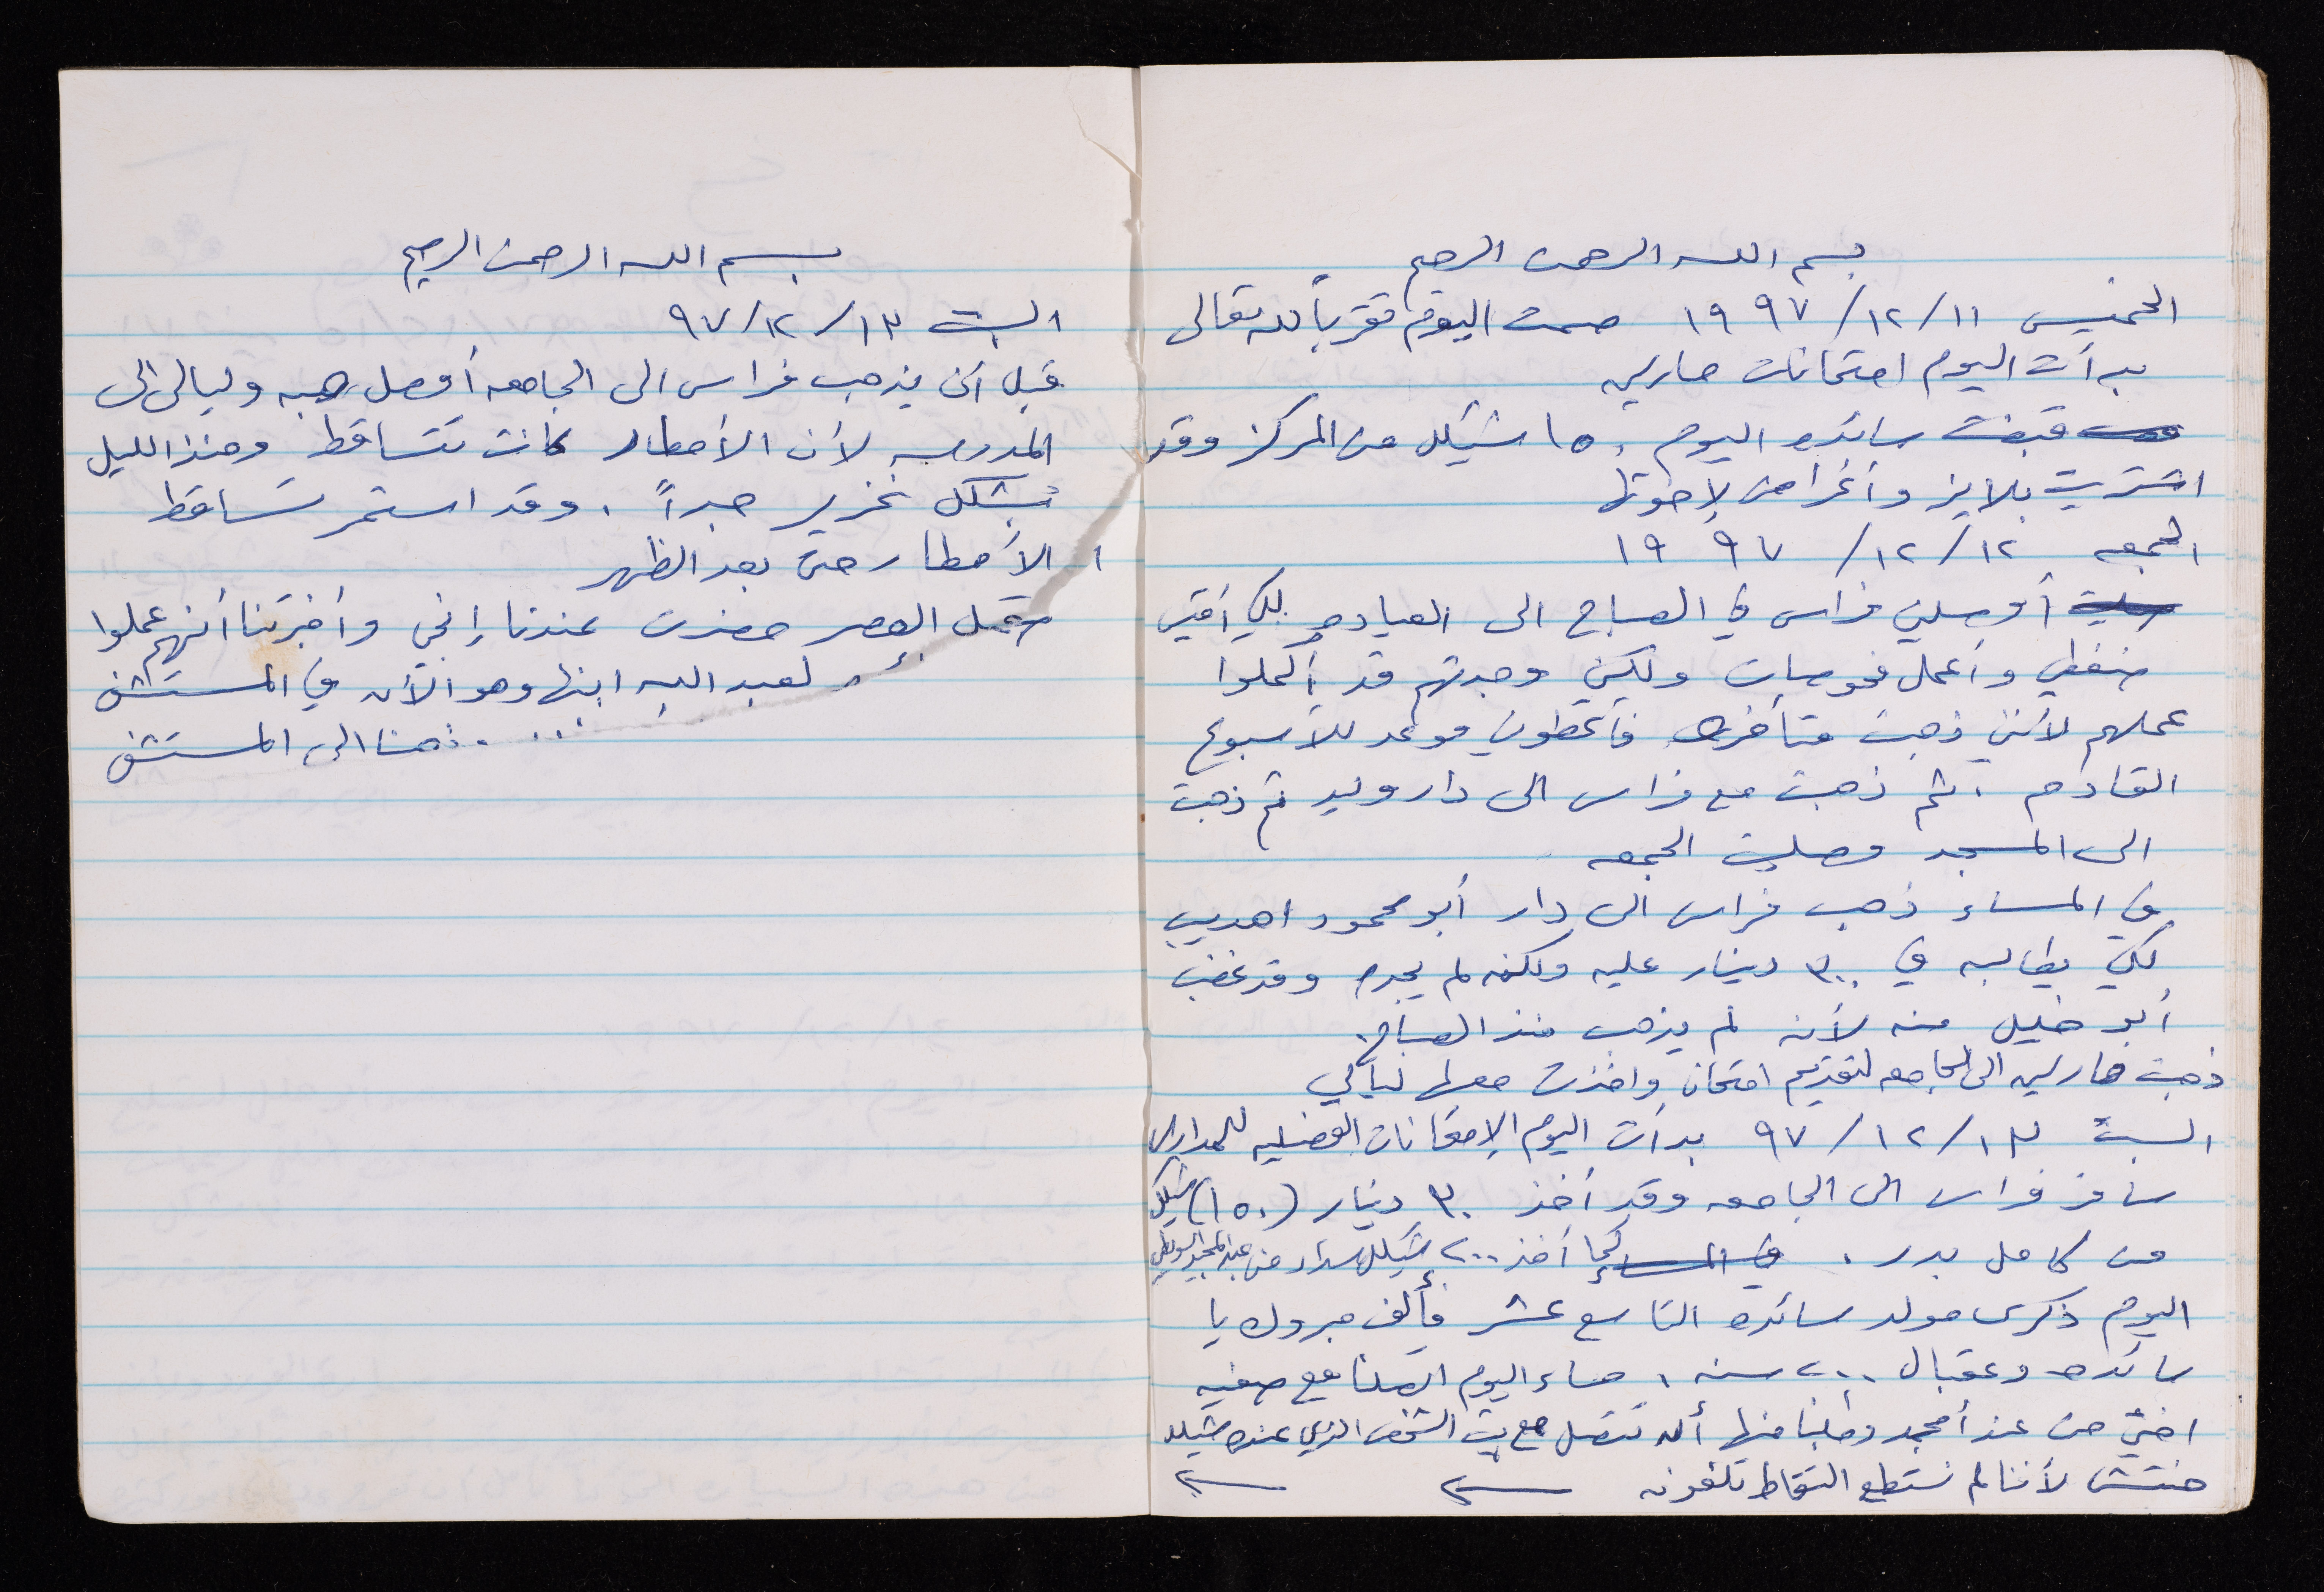 بسم الله الرحمن الرحيم
الخميس ١١/١٢/١٩٩٧ صمت اليوم تقرباً لله تعالى
بدأت اليوم امتحانات
قبضت سائده اليوم ١٥٠ شيكل من المركز وقد
اشترت بلايز وأغراض لإخوتها
الجمعه ١٢/١٢/١٩٩٧
أوصلني فراس في الصباح الى العياده لكي أقيس
ضغطي وأعمل فحوصات ولكني وجدتهم قد أكملوا
عملهم لأنني ذهبت متأخره فأعطوني موعد للأسبوع
القادم . ثم ذهبت مع فراس الى دار وليد ثم ذهبت
الى المسجد وصليت الجمعه
في المساء ذهب فراس الى دار أبو محمود اهديب
لكي يطالبه في ٣٠٠ دينار عليه ولكنه لم يجده وقد غضب
أبو خليل منه لأنه لم يذهب منذ الصباح.
ذهبت الى الجامعه لتقديم امتحان واخذت معها ليالي
السبت ١٣/١٢/٩٧ بدأت اليوم الإمتحانات الفصليه للمدارس
سافر فراس الى الجامعه وقد أخذ ٣٠ دينار (١٥٠) شيكل
من كامل بدر . كما أخذ ٢٠٠ شيكل سداد من عبد المجيد
اليوم ذكرى مولد سائده التاسع عشر فألف مبروك يا
سائده وعقبال ٢٠٠ سنه . مساء اليوم اتصلنا مع صفيه
اختي من عند أمجد وطلبنا منها أن تتصل مع بيت الشخص الذي عنده
لأننا لم نستطع التقاط تلفونه
بسم الله الرحمن الرحيم
السبت ١٣/١٢/٩٧
قبل أن يذهب فراس الى الجامعه أوصل هبه وليالي الى
المدرسه لأن الأمطار كانت تتساقط ومنذ الليل
بشكل غزير جداً . وقد استمر تساقط
الأمطار حتى بعد الظهر
قبل العصر حضرت عندنا إنجي وأخبرتنا أنهم عملوا
لعبد الله ابنها وهو الآن في المستشفى
ذهبنا الى المستشفى